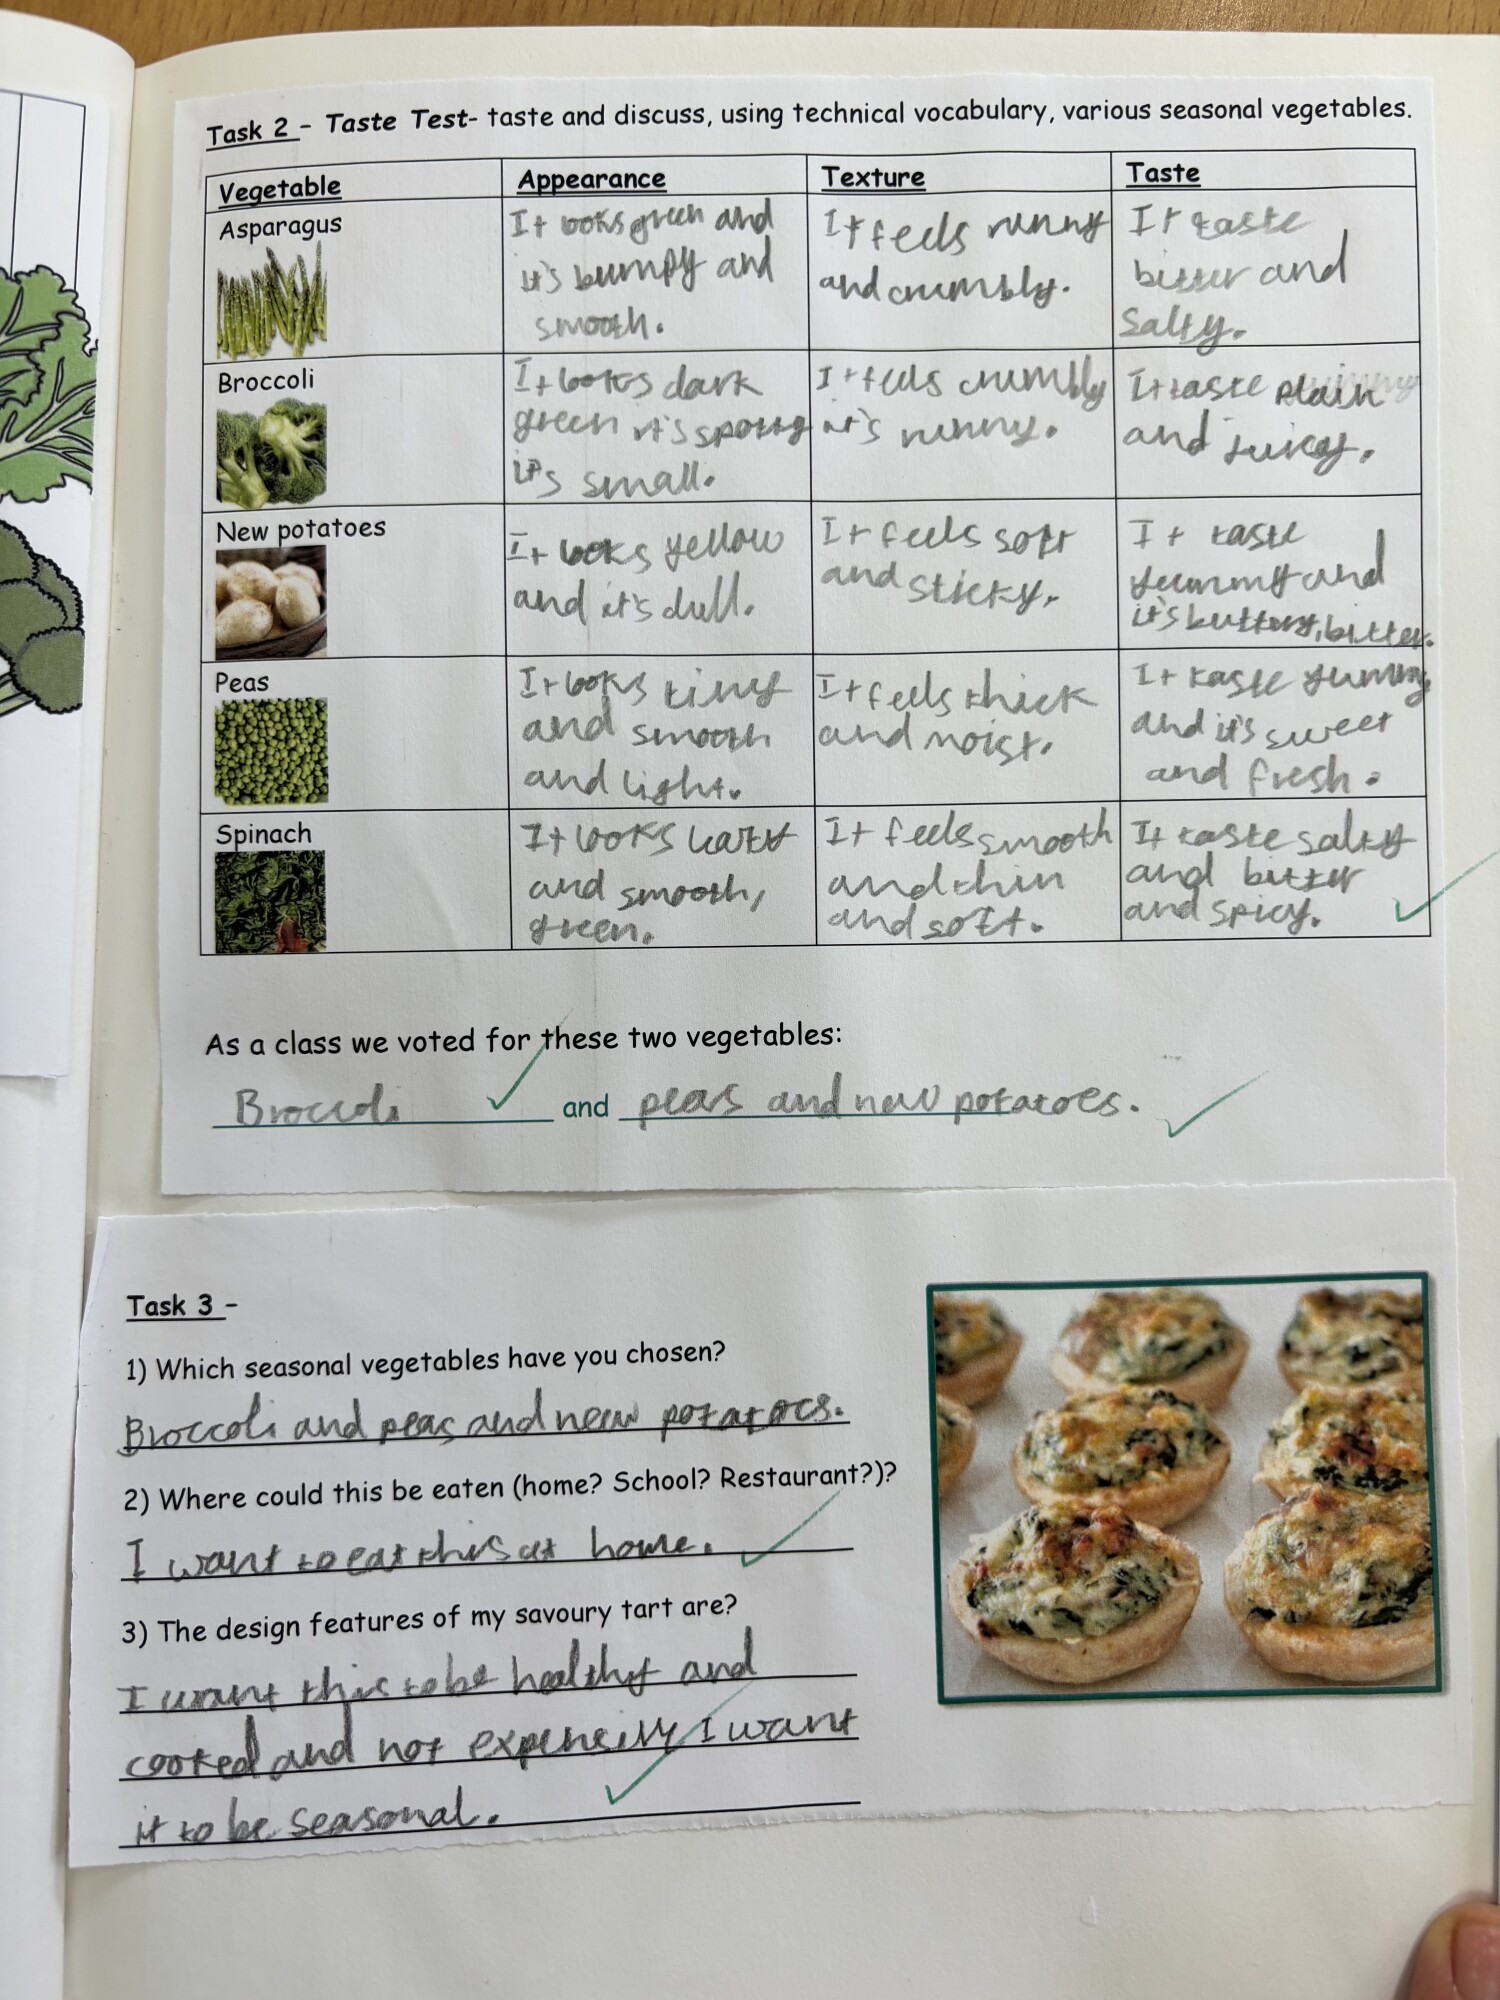 Task 2 - Taste Test- taste and discuss, using technical vocabulary, various seasonal vegetables.
Vegetable
Appearance
Texture
Taste
Asparagus
It looks green and
it's bumpy and
smooth.
It feels runny
and crumbly.
It taste
bitter and
salty.
Broccoli
It looks dark
green it's spotty
it's small.
It feels crumbly
it's runny.
It taste plain
and juicy.
New potatoes
It looks yellow
and it's dull.
It feels soft
and sticky.
It taste
yummy and
it's buttery, bitter.
Peas
It looks tiny
and smooth
and light.
It feels thick
and moist.
It taste yummy
and it's sweet
and fresh.
Spinach
It looks
and smooth,
green.
It feels smooth
and thin
and soft.
It taste salty
and bitter
and spicy.
As a class we voted for these two vegetables:
Broccoli and peas and new potatoes.
Task 3 -
1) Which seasonal vegetables have you chosen?
Broccoli and peas and new potatoes.
2) Where could this be eaten (home? School? Restaurant?)?
I want to eat this at home.
3) The design features of my savoury tart are?
I want this to be healthy and
cooked and not I want
it to be seasonal.